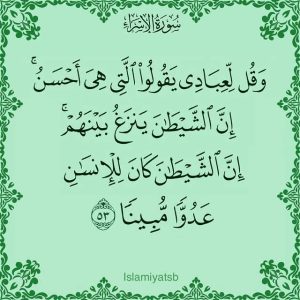 سُورَةُ الْإِسْرَاءِ
وَقُل لِّعِبَادِى يَقُولُوا۟ ٱلَّتِى هِىَ أَحْسَنُ ۚ
إِنَّ ٱلشَّيْطَـٰنَ يَنزَغُ بَيْنَهُمْ ۚ
إِنَّ ٱلشَّيْطَـٰنَ كَانَ لِلْإِنسَـٰنِ
عَدُوًّا مُّبِينًا ٥٣
Islamiyatsb